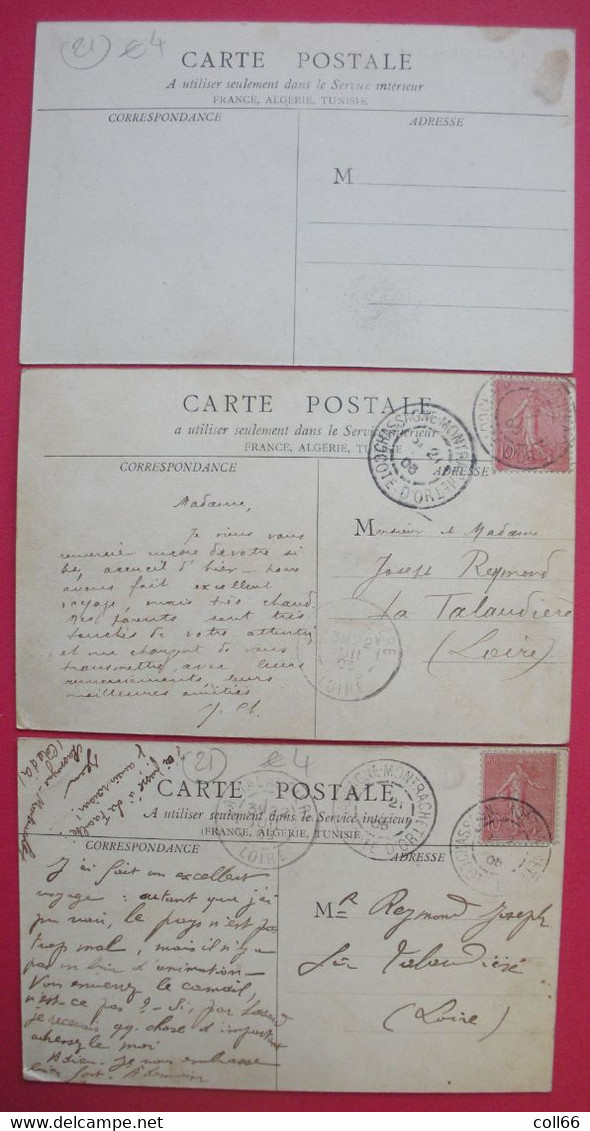 (21) e4
CARTE POSTALE
A utiliser seulement dans le Service intérieur
FRANCE, ALGERIE, TUNISIE
CORRESPONDANCE
ADRESSE
M
CARTE POSTALE
a utiliser seulement dans le Service intérieur
FRANCE, ALGERIE, TUNISIE
CORRESPONDANCE
CHASSAGNE-MONTRACHET
21
05
COTE-D'OR
Madame,
Je viens vous
remercier encore de votre si
bel accueil d'hier – nous
avons fait excellent
voyage, mais très chaud.
Mes parents sont très
touchés de votre attention
et me chargent de vous
transmettre, avec leurs
remerciements, leurs
meilleures amitiés
J. Ch.
Monsieur et Madame
Joseph Reymond
La Talaudière
(Loire)
LOIRE
(21) e4
CARTE POSTALE
A utiliser seulement dans le Service intérieur
(FRANCE, ALGERIE, TUNISIE)
CORRESPONDANCE
ADRESSE
CHASSAGNE-MONTRACHET
21
05
COTE-D'OR
LOIRE
J'ai fait un excellent
voyage : autant que j'ai
pu voir, le pays n'est pas
trop mal, mais il n'y a
pas bien d'animation –
Vous enverrez le camail,
n'est ce pas ? – Si, par hasard
je recevais qq. chose d'important
adressez le moi
Adieu. Je vous embrasse
bien fort. A demain
Mr Reymond Joseph
La Talaudière
(Loire)
delcampe.net
coll66